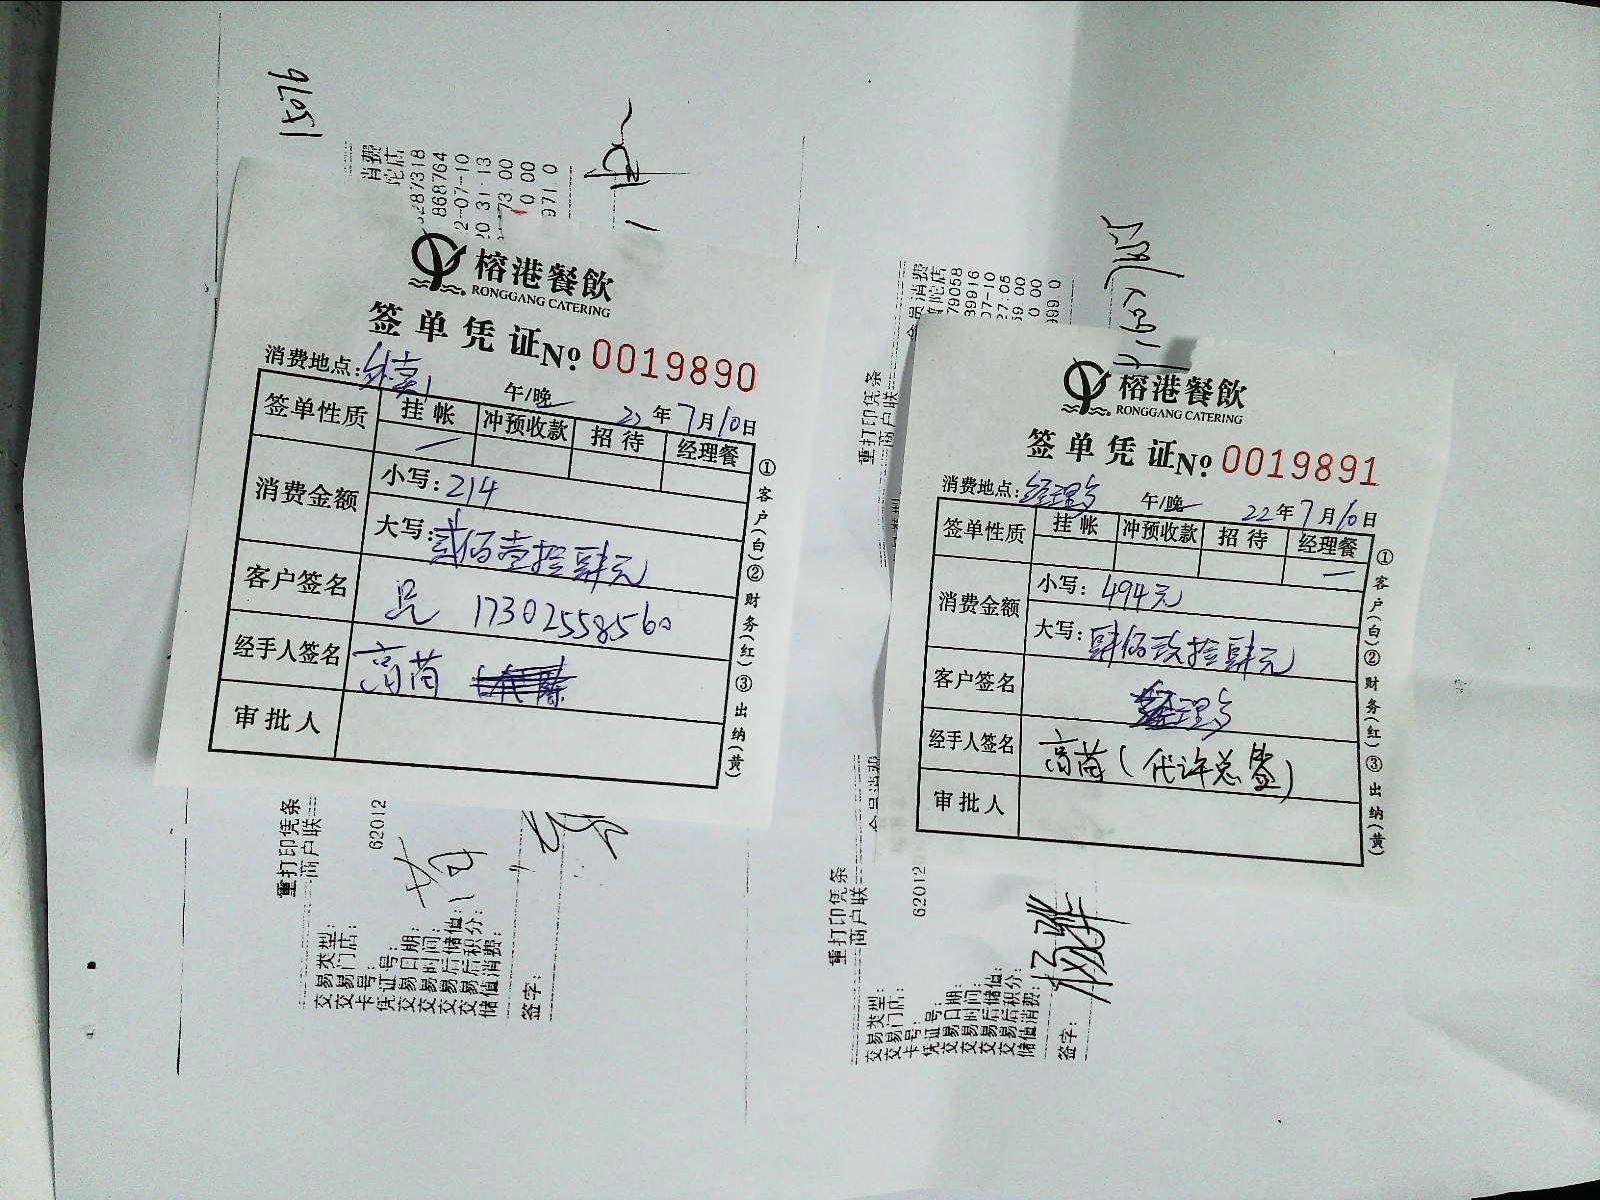 15076
消费
陀店
287318
868764
2-07-10
20 31:13
73.00
0.00
971.0
榕港餐飲
RONGGANG CATERING
签单凭证 No. 0019890
消费地点：外卖1 午/晚 22年7月10日
签单性质 挂帐 冲预收款 招待 经理餐
消费金额 小写：214
大写：贰佰壹拾肆元
客户签名 吕 17302558560
经手人签名 高苗
审批人
①客户(白)②财务(红)③出纳(黄)
重打印凭条
商户联
62012
交易类型：
交易门店：
卡号：
凭证号：
交易日期：
交易时间：
交易后储值：
交易后积分：
储值消费：
签字：
消费
陀店
79058
89916
07-10
27:05
59.00
0.00
999.0
重打印凭条
商户联
榕港餐飲
RONGGANG CATERING
签单凭证 No. 0019891
消费地点：经理餐 午/晚 22年7月10日
签单性质 挂帐 冲预收款 招待 经理餐
消费金额 小写：494元
大写：肆佰玖拾肆元
客户签名 经理餐
经手人签名 高苗(代许总签)
审批人
①客户(白)②财务(红)③出纳(黄)
重打印凭条
商户联
62012
交易类型：
交易门店：
卡号：
凭证号：
交易日期：
交易时间：
交易后储值：
交易后积分：
储值消费：
签字：